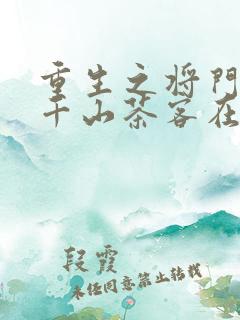 重生之将门
千山茶客在
段霞
未经同意禁止转载